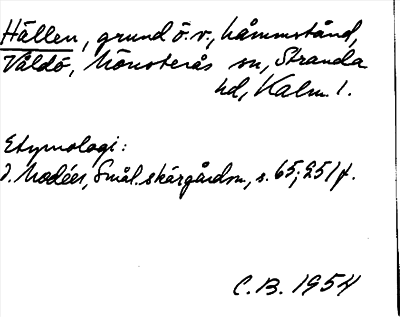 Hällen, grund ö.v., Låmmstånd,
Våldö, Mönsterås sn, Stranda
hd, Kalm. l.
Etymologi:
I. Modéer, Smål. skärgårdsn., s. 65; 251 f.
C.B. 1954